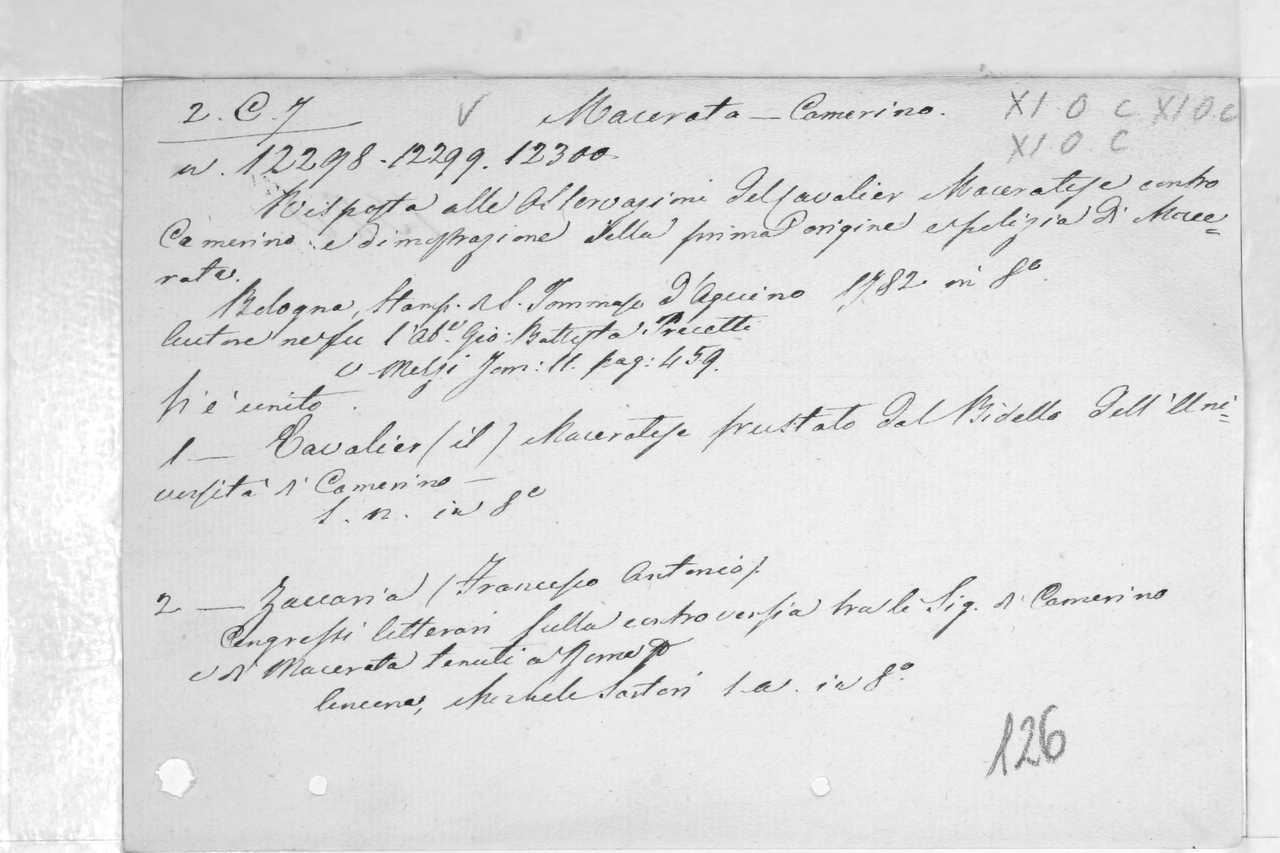 2. C. 7 V Macerata — Camerino. XI. O C XI. O. C
XI. O. C
n. 12298-12299. 12300.
Risposta alle Osservazioni del Cavalier Maceratese contro
Camerino: e dimostrazione della prima origine e pulizia di Mace=
rata.
Bologna, Stamp. di S. Tommaso d'Aquino 1782 in 8°.
Autore ne fu l'Abe. Gio: Battista
v. Melzi Tom: II. pag: 459.
Vi è unito.
1 — Cavalier (il) Maceratese frustato dal Bidello dell'Uni=
versità di Camerino —
S. n. in 8°
2 — Zaccaria (Francesco Antonio).
Congressi letterari sulla controversia tra le Sig. di Camerino
e di Macerata tenuti a Roma
Ancona, Michele Sartori s.a. in 8°.
126